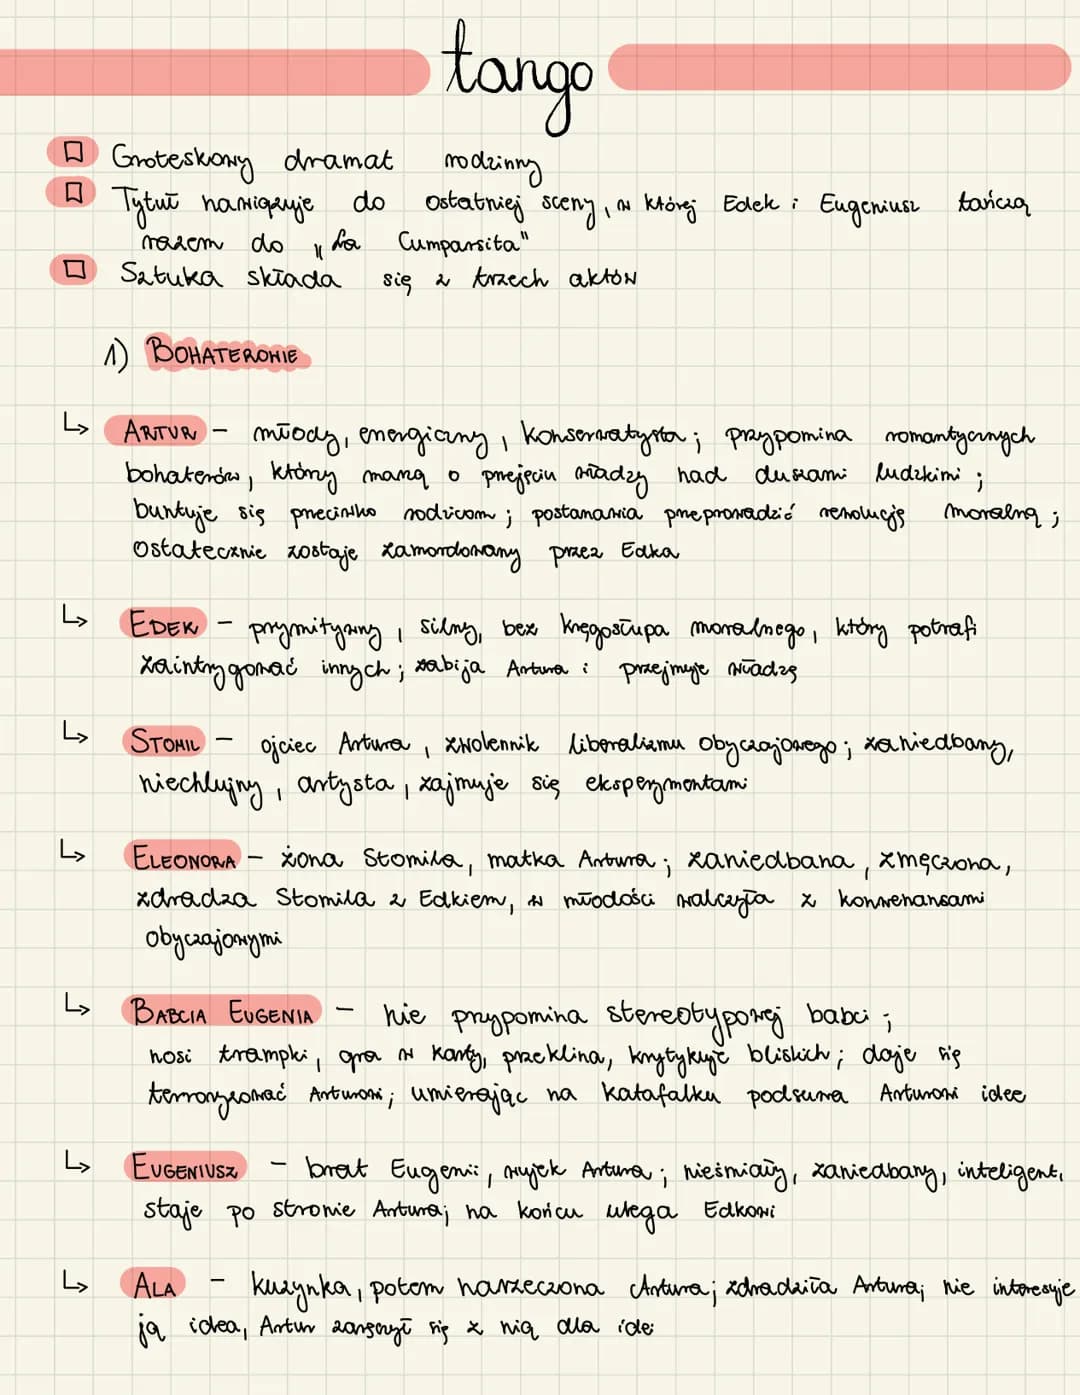 tango
Groteskowy dramat rodzinny
Tytuł nawiązuje do ostatniej sceny, w której Edek i Eugeniusz tańczą
razem do „La Cumparsita"
Sztuka składa się z trzech aktów
1) BOHATEROWIE
↳ ARTUR – młody, energiczny, konserwatysta; przypomina romantycznych
bohaterów, który marzą o przejęciu władzy nad duszami ludzkimi;
buntuje się przeciwko rodzicom; postanawia przeprowadzić rewolucję moralną;
ostatecznie zostaje zamordowany przez Edka
↳ EDEK – prymitywny, silny, bez kręgosłupa moralnego, który potrafi
zaintrygować innych; zabija Artura i przejmuje władzę
↳ STOMIL – ojciec Artura, zwolennik liberalizmu obyczajowego; zaniedbany,
niechlujny, artysta, zajmuje się eksperymentami
↳ ELEONORA – żona Stomila, matka Artura; zaniedbana, zmęczona,
zdradza Stomila z Edkiem, w młodości walczyła z konwenansami
obyczajowymi
↳ BABCIA EUGENIA – nie przypomina stereotypowej babci;
nosi trampki, gra w karty, przeklina, krytykuje bliskich; daje się
terroryzować Arturowi; umierając na katafalku podsuwa Arturowi ideę
↳ EUGENIUSZ – brat Eugenii, wujek Artura; nieśmiały, zaniedbany, inteligent,
staje po stronie Artura; na końcu ulega Edkowi
↳ ALA – kuzynka, potem narzeczona Artura; zdradziła Artura; nie interesuje
ją idea, Artur zaręczył się z nią dla idei